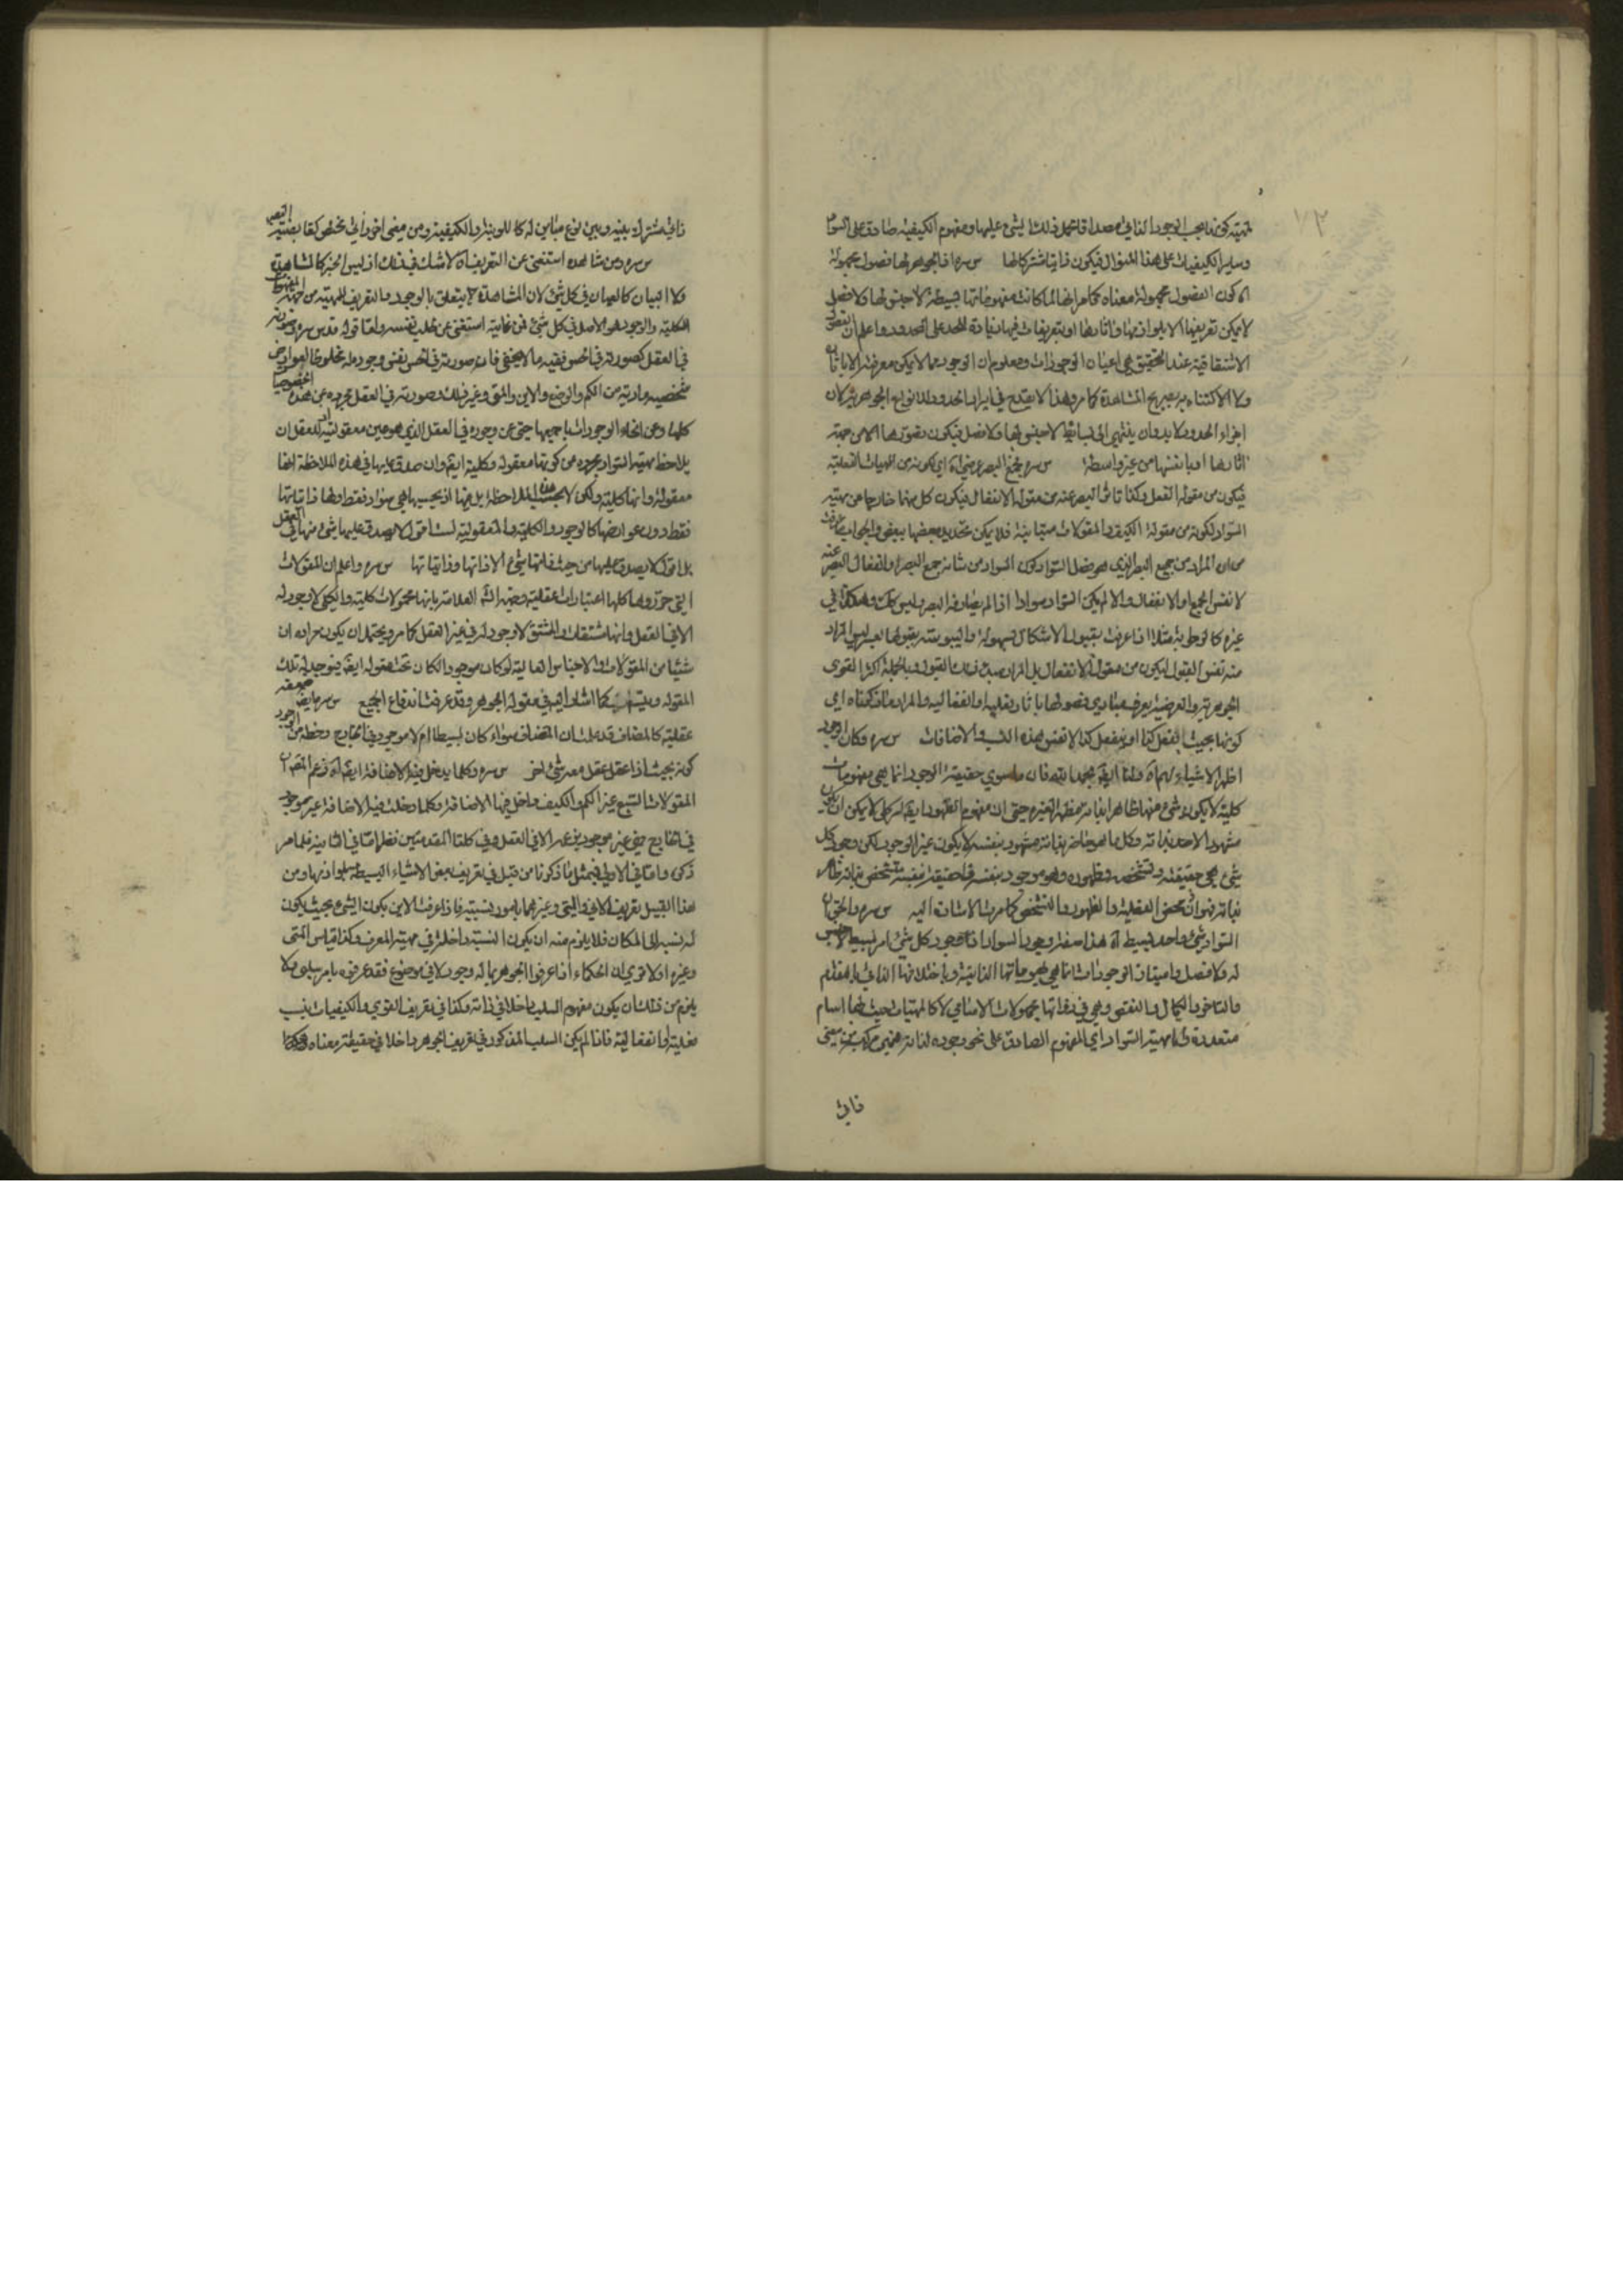 وساير الكيفيات على هذا المنوال فيكون ذاتيا مشتركا لها س سره اذ الجوهر لها فصول مجهولة
اه كون الفصول مجهولة معناه كما مر انها لما كانت مفهوماتها بسيطة لا جنس لها ولا فصل
لا يمكن تعريفها الا بلوازمها واثارها او بتعريفات فيها زيادة للحد على المحدود واعلم ان الفصول
الاشتقاقية عند التحقيق هي اعيان الوجودات ومعلوم ان الوجود مما لا يمكن معرفته الا باثاره
ولا الاكتناه به بصريح المشاهدة كما مر وهذا لا يقدح في ايراد الحدود لانواع الجوهرية لان
اجزاء الحدود لا بد وان ينتهي الى بسائط لا جنس لها ولا فصل فيكون تصورها الا من جهة
اثارها او بانفسها من غير واسطة س سره يجمع البصر عرضي اه اي كونه من الهيات الفعلية
فيكون من مقولة الفعل وكذا تاثر البصر عنه من مقولة الانفعال فيكون كل منهما خارجا عن مهية
السواد لكونه من مقولة الكيف والمقولات متباينة فلا يمكن تحديد بعضها ببعض والجواب ما عرفت
من ان المراد من جمع البصر الذي هو فصل السواد كون السواد من شانه جمع البصر او انفعال البصر عنه
لا نفس الجمع او الانفعال والا لم يكن السواد سوادا اذا لم يصادفه البصر وليس كذلك وهكذا في
غيره كالرطوبة مثلا اذا عرفت بقبول الاشكال بسهولة واليبوسة بقبولها بعسر ليس المراد
منه نفس القبول ليكون من مقولة الانفعال بل المراد مبدء ذلك القبول وبالجملة اكثر القوى
الجوهرية والعرضية يعرف مبادي فصولها باثار فعلية او انفعالية والمراد ما ذكرناه اي
كونها بحيث يفعل كذا او ينفعل كذا لا نفس هذه النسب والاضافات س سره وكان الوجود
اظهر الاشياء لها اه قلنا ايضا بحمد الله فان ما سوى حقيقة الوجود انما هي مفهومات
كلية لا يكون شيء منها ظاهرا بذاته مظهرا لغيره حتى ان مفهوم الظهور ايضا امر كلي لا يمكن ان يكون
مشهودا لاحد بذاته وكل ما هو حاضر بذاته مشهود بنفسه لا يكون غير الوجود لكن وجود كل
شيء هي حقيقته وتشخصه وظهوره وهو موجود بنفسه وحقيقة بنفسه متشخص بذاته ظاهر
بذاته فهو ان محض الفعلية والظهور والتشخص كما مرت الاشارة اليه س سره والحق ان
السواد شيء واحد بسيط اه هذا صفة وجود السواد اذ وجود كل شيء امر بسيط لا جنس
له ولا فصل وامتياز الوجودات انما هي بهوياتها الذاتية وباختلافها الذاتي بالتقدم
والتاخر والكمال والنقص وهي في ذواتها مجهولات الاسامي لا كالمهيات حيث لها اسام
متعددة واما مهية السواد اي المفهوم الصادق على نحو وجوده لذاته فهي مركبة من معنى
ذاتي
ذاتي مشترك بينه وبين نوع مباين له كاللونية والكيفية ومن معنى اخر ذاتي مختص كقابضية البصر
س سره ومن شاهده استغنى عن التعريف اه لا شك في ذلك اذ ليس الخبر كالمشاهدة
ولا البيان كالعيان في كل شيء لان المشاهدة يتعلق بالوجود والتعريف للمهية من جهة المفهومات
الكلية والوجود هو الاصل في كل شيء فمن عاينه استغنى عن طلب تفسيره واما قوله قدس سره وصورته
في العقل كصورته في الحس ففيه ما لا يخفى فان صورته في الحس نفس وجود مخلوط بالعوارض
مشخصية مادية من الكم والوضع والاين والمتى وغير ذلك وصورته في العقل مجردة عن هذه المخصوصيات
كلها وعن انحاء الوجودات باجمعها حتى عن وجوده في العقل الذي هو عين معقوليته اذ للعقل ان
يلاحظ مهية السواد مجردة من كونها معقولة وكلية ايضا وان صدق عليها في هذه الملاحظة انها
معقولة وانها كلية ولكن لا بحسب هذه الملاحظة بل انها اذ بحسبها هي سواد فقط ولها ذاتياتها
فقط دون عوارضها كالوجود والكلية والمعقولية لست اقول لا يصدق عليها شيء منها في العقل
بل اقول لا يصدق عليها من حيث ذاتها شيء الا ذاتها وذاتياتها س سره واعلم ان المقولات
التي حرروها كلها اعتبارات عقلية وجهه الشه العلامة بانها محمولات كلية والكلي لا وجود له
الا في العقل وانها مشتقات والمشتق لا وجود له في غير العقل كما مر ويحتمل ان يكون مراده ان
شيئا من المقولات والاجناس العالية لو كان موجودا لكان تحت مقولة ايضا فيوجد له تلك
المقولة ويتسلسل كما اشار اليه في مقولة الجوهر وقد عرفت اندفاع الجميع س سره صفة
عقلية كالمضاف قد علمت ان المضاف سواء كان بسيطا ام لا موجود في الخارج وحظه من الوجود
كونه بحيث اذا عقل عقل معه شيء اخر س سره وكلما يدخل فيه الاضافة ايضا اه زعم المصنف ان
المقولات السبع غير الكم والكيف داخل فيها الاضافة وكلما دخلت فيه الاضافة غير موجود
في الخارج فهي غير موجودة عنده الا في العقل وفي كلتا المقدمتين نظر اما في الثانية فلما مر
ذكره واما في الاولى فبمثل ما ذكرنا من قبل في تعريف بعض الاشياء البسيطة بلوازمها ومن
هذا القبيل تعريف الاين والمتى وغيرهما بامور نسبية فاذا عرفت الاين بكون الشيء بحيث يكون
له نسبة الى المكان فلا يلزم منه ان يكون النسبة داخلة في مهية المعرف وكذا قياس المتى
وغيره اولا ترى ان الحكماء اذا عرفوا الجوهر بما له وجود لا في موضوع فقد عرفوه بامر سلبي ولا
يلزم من ذلك ان يكون مفهوم السلب داخلا في ذاته وكذا في تعريف القوى والكيفيات بنسب
فعلية او انفعالية فاذا لم يكن السلب المذكور في تعريف الجوهر داخلا في حقيقته معناه فكذا